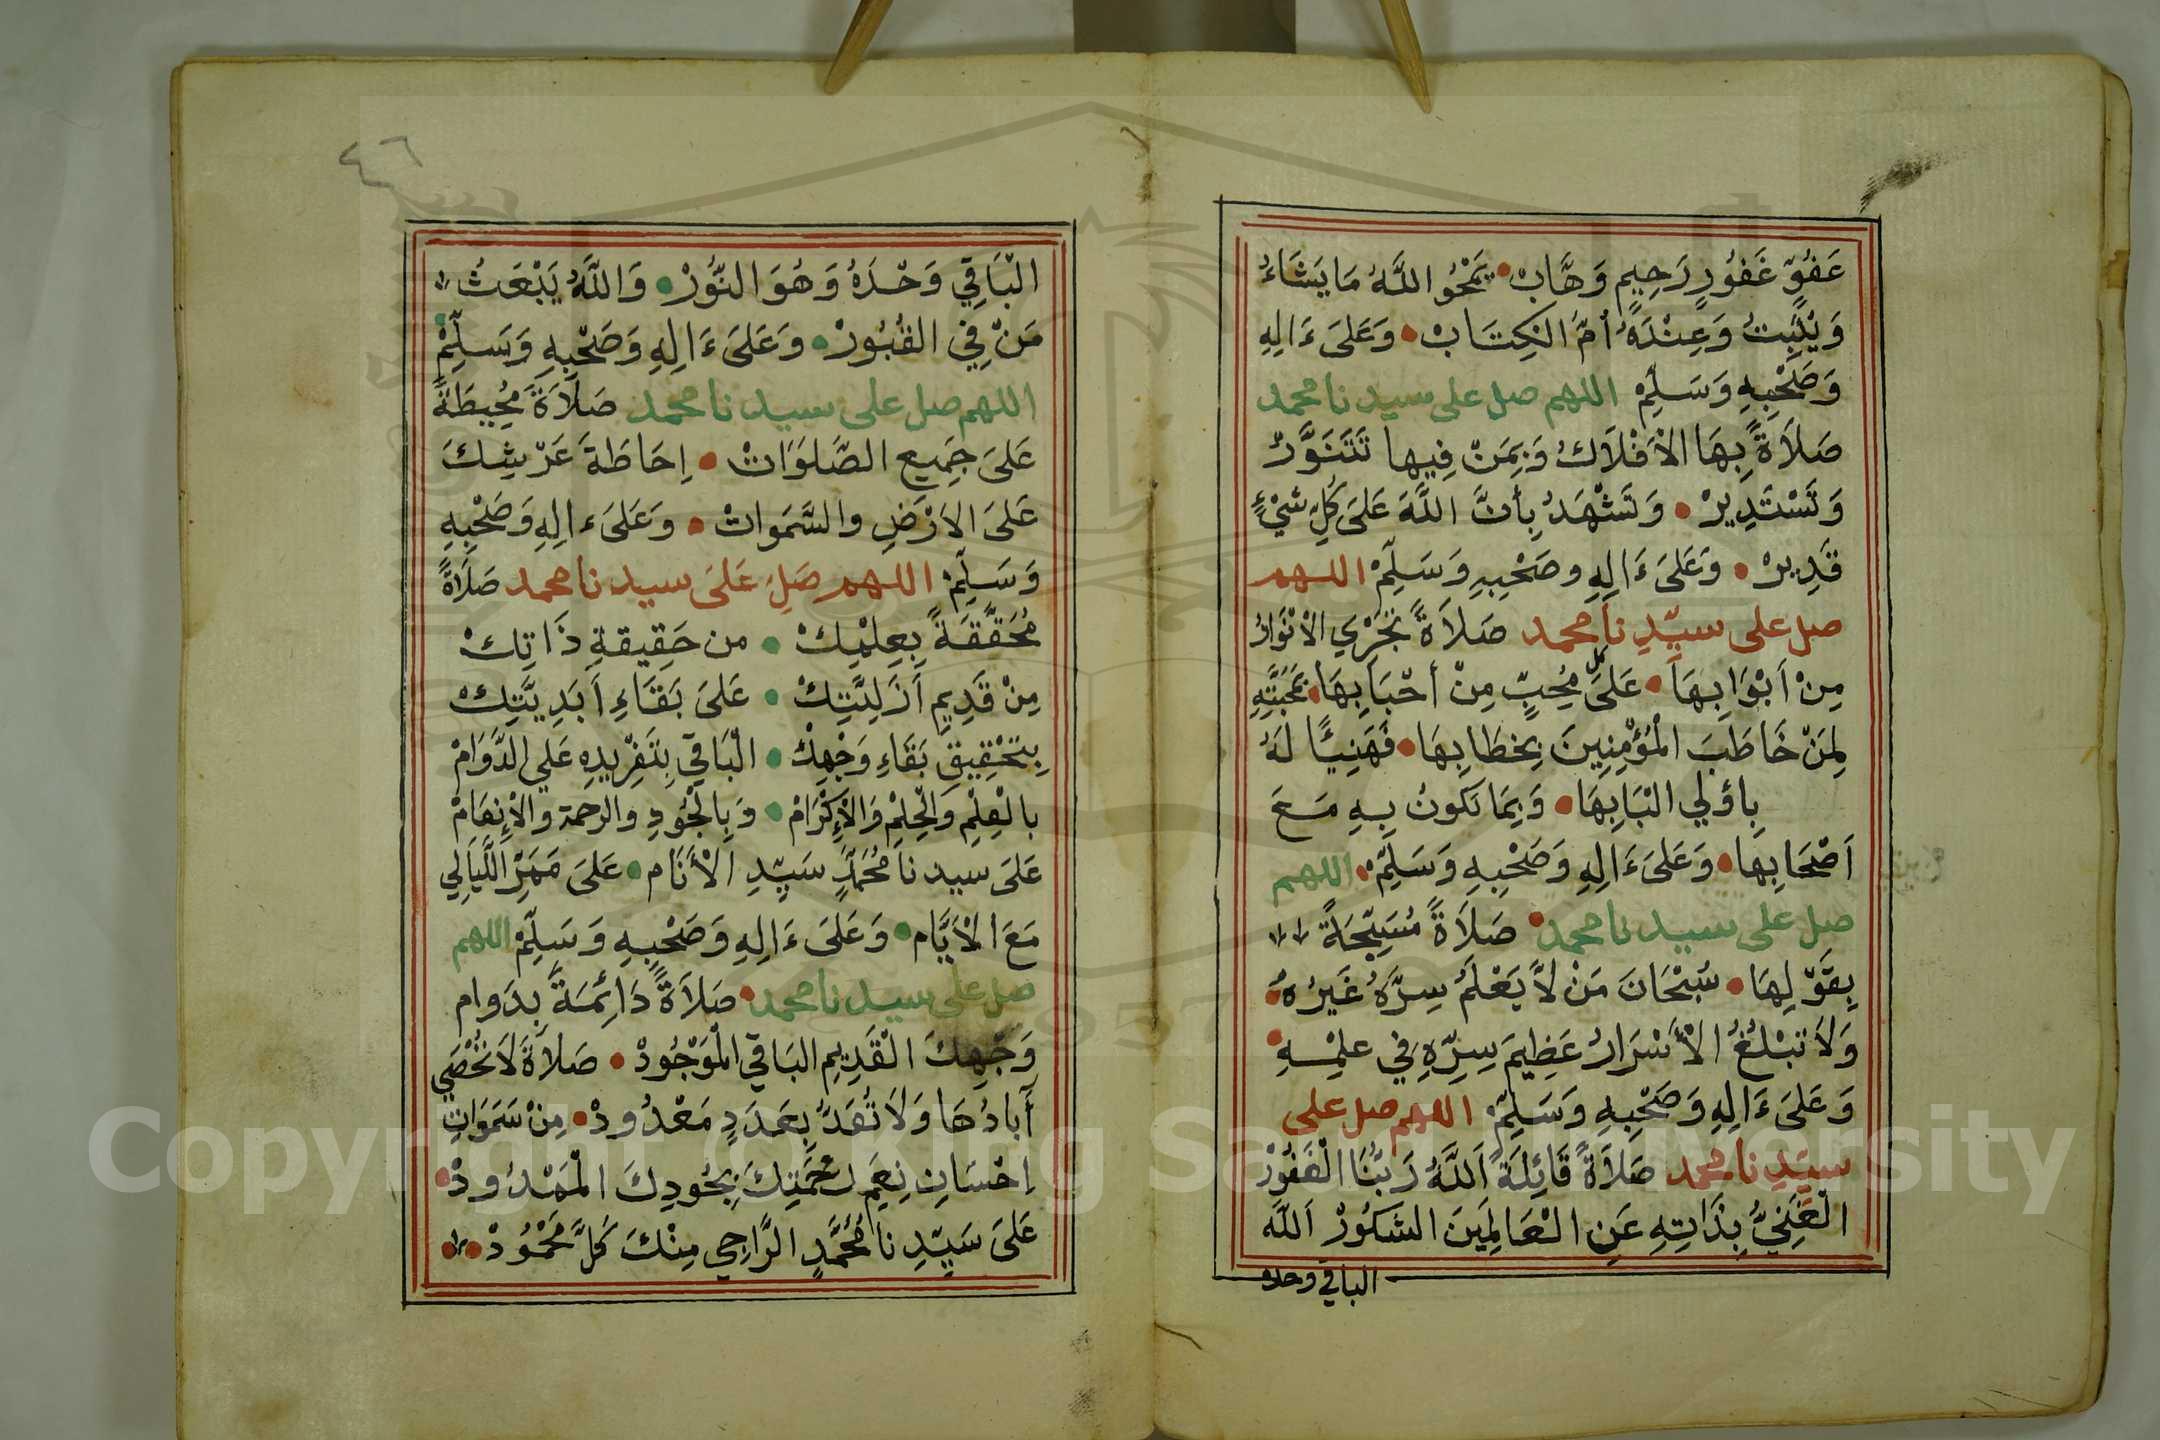 عَفُوٍّ غَفُورٍ رَحِيمٍ وَهَّابْ • يَمْحُو اللَّهُ مَا يَشَاءُ
وَيُثْبِتُ وَعِنْدَهُ أُمُّ الْكِتَابْ • وَعَلَى ءَالِهِ
وَصَحْبِهِ وَسَلِّمْ اللهم صل على سيدنا محمد
صَلَاةً بِهَا الْأَفْلَاكُ وَبِمَنْ فِيهَا تَتَنَوَّرْ
وَتَسْتَدِيرْ • وَتَشْهَدُ بِأَنَّ اللَّهَ عَلَى كُلِّ شَيْءٍ
قَدِيرْ • وَعَلَى ءَالِهِ وصَحْبِهِ وَسَلِّمْ اللهم
صل على سيِّدِنا محمد صَلَاةً تَجْرِي الْأَنْوَارُ
مِنْ أَبْوَابِهَا • عَلَى كل مُحِبٍّ مِنْ أَحْبَابِهَا • بِمَحَبَّتِهِ
لِمَنْ خَاطَبَ الْمُؤْمِنِينَ بِخِطَابِهَا • فَهَنِيئًا لَهُ
بِأُولِي الْبَابِهَا • وَبِمَا تَكُونُ بِهِ مَعَ
أَصْحَابِهَا • وَعَلَى ءَالِهِ وَصَحْبِهِ وَسَلِّمْ • اللهم
صل على سيدنا محمد • صَلَاةً مُسَبِّحَةً
بِقَوْلِهَا • سُبْحَانَ مَنْ لَا يَعْلَمُ سِرَّهُ غَيْرُهُ •
وَلَا تَبْلُغُ الْأَسْرَارُ عَظِيمَ سِرِّهِ فِي عِلْمِهِ •
وَعَلَى ءَالِهِ وَصَحْبِهِ وَسَلِّمْ اللهم صل على
سيِّدِنا محمد صَلَاةً قَائِلَةً اَللَّهُ رَبُّنَا الْغَفُورْ
الْغَنِيُّ بِذَاتِهِ عَنِ الْعَالَمِينَ الشَّكُورْ اَللَّه
الباقي وحده
٤٦
الْبَاقِي وَحْدَهُ وَهُوَ النُّورْ • وَاللَّهُ يَبْعَثُ
مَنْ فِي الْقُبُورْ • وَعَلَى ءَالِهِ وَصَحْبِهِ وَسَلِّمْ •
اللهم صل على سيدنا محمد صَلَاةً مُحِيطَةً
عَلَى جَمِيعِ الصَّلَوَاتْ • إِحَاطَةَ عَرْشِكَ
عَلَى الْأَرْضِ والسَّمَوَاتْ • وَعَلَى ءالِهِ وَصَحْبِهِ
وَسَلِّمْ اللهم صَلِ عَلَى سيدنا محمد صَلَاةً
مُحَقَّقَةً بِعِلْمِكْ • من حَقِيقةِ ذَاتِكْ
مِنْ قَدِيمِ أَزَلِيَّتِكْ • عَلَى بَقَاءِ أَبَدِيَّتِكْ
بِتَحْقِيقِ بَقَاءِ وَجْهِكْ • الْبَاقِي بِتَفْرِيدِهِ عَلي الدَّوَامْ
بالْعِلْمِ وَالْحِلْمِ وَالْإِكْرَامْ • وَبِالْجُودِ والرحمة والْإِنْعَامْ
عَلَى سيدنا مُحَمَّدٍ سَيِّدِ الْأَنَامِ • عَلَى مَمَرِّ اللَّيَالِي
مَعَ الْأَيَّامِ • وَعَلَى ءَالِهِ وَصَحْبِهِ وَسَلِّمْ اللهم
صل على سيدنا محمد • صَلَاةً دَائِمَةً بِدَوامِ
وَجْهِكَ الْقَدِيمِ الْبَاقِي الْمَوْجُودْ • صَلَاةً لَا تُحْصَي
أبادُهَا وَلَا تُعَدُّ بِعَدَدٍ مَعْدُودْ • مِنْ سَمَوَاتِ
إِحْسَانِ نِعَمِ رَحْمَتِكَ بِجُودِكَ الْمَمْدُودْ •
عَلَى سَيِّدِنَا مُحَمَّدٍ الرَّاجِي مِنْكَ كُلَّ مَحْمُودْ •
Copyright © King Saud University
1957